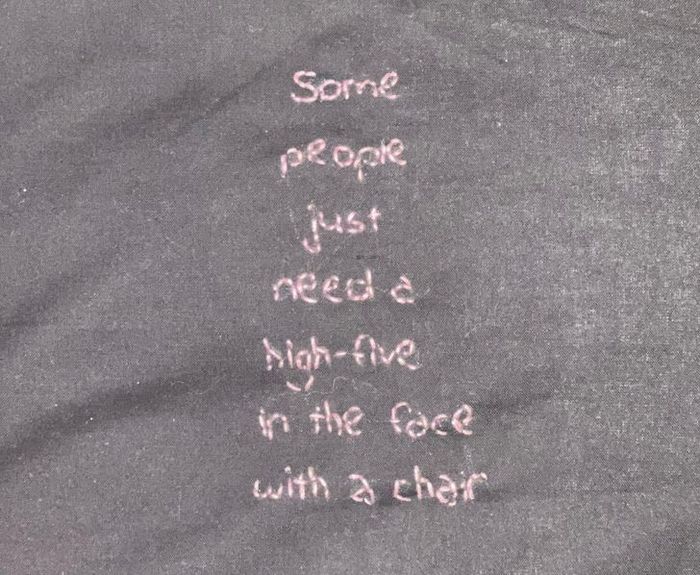 Some
people
just
need a
high-five
in the face
with a chair